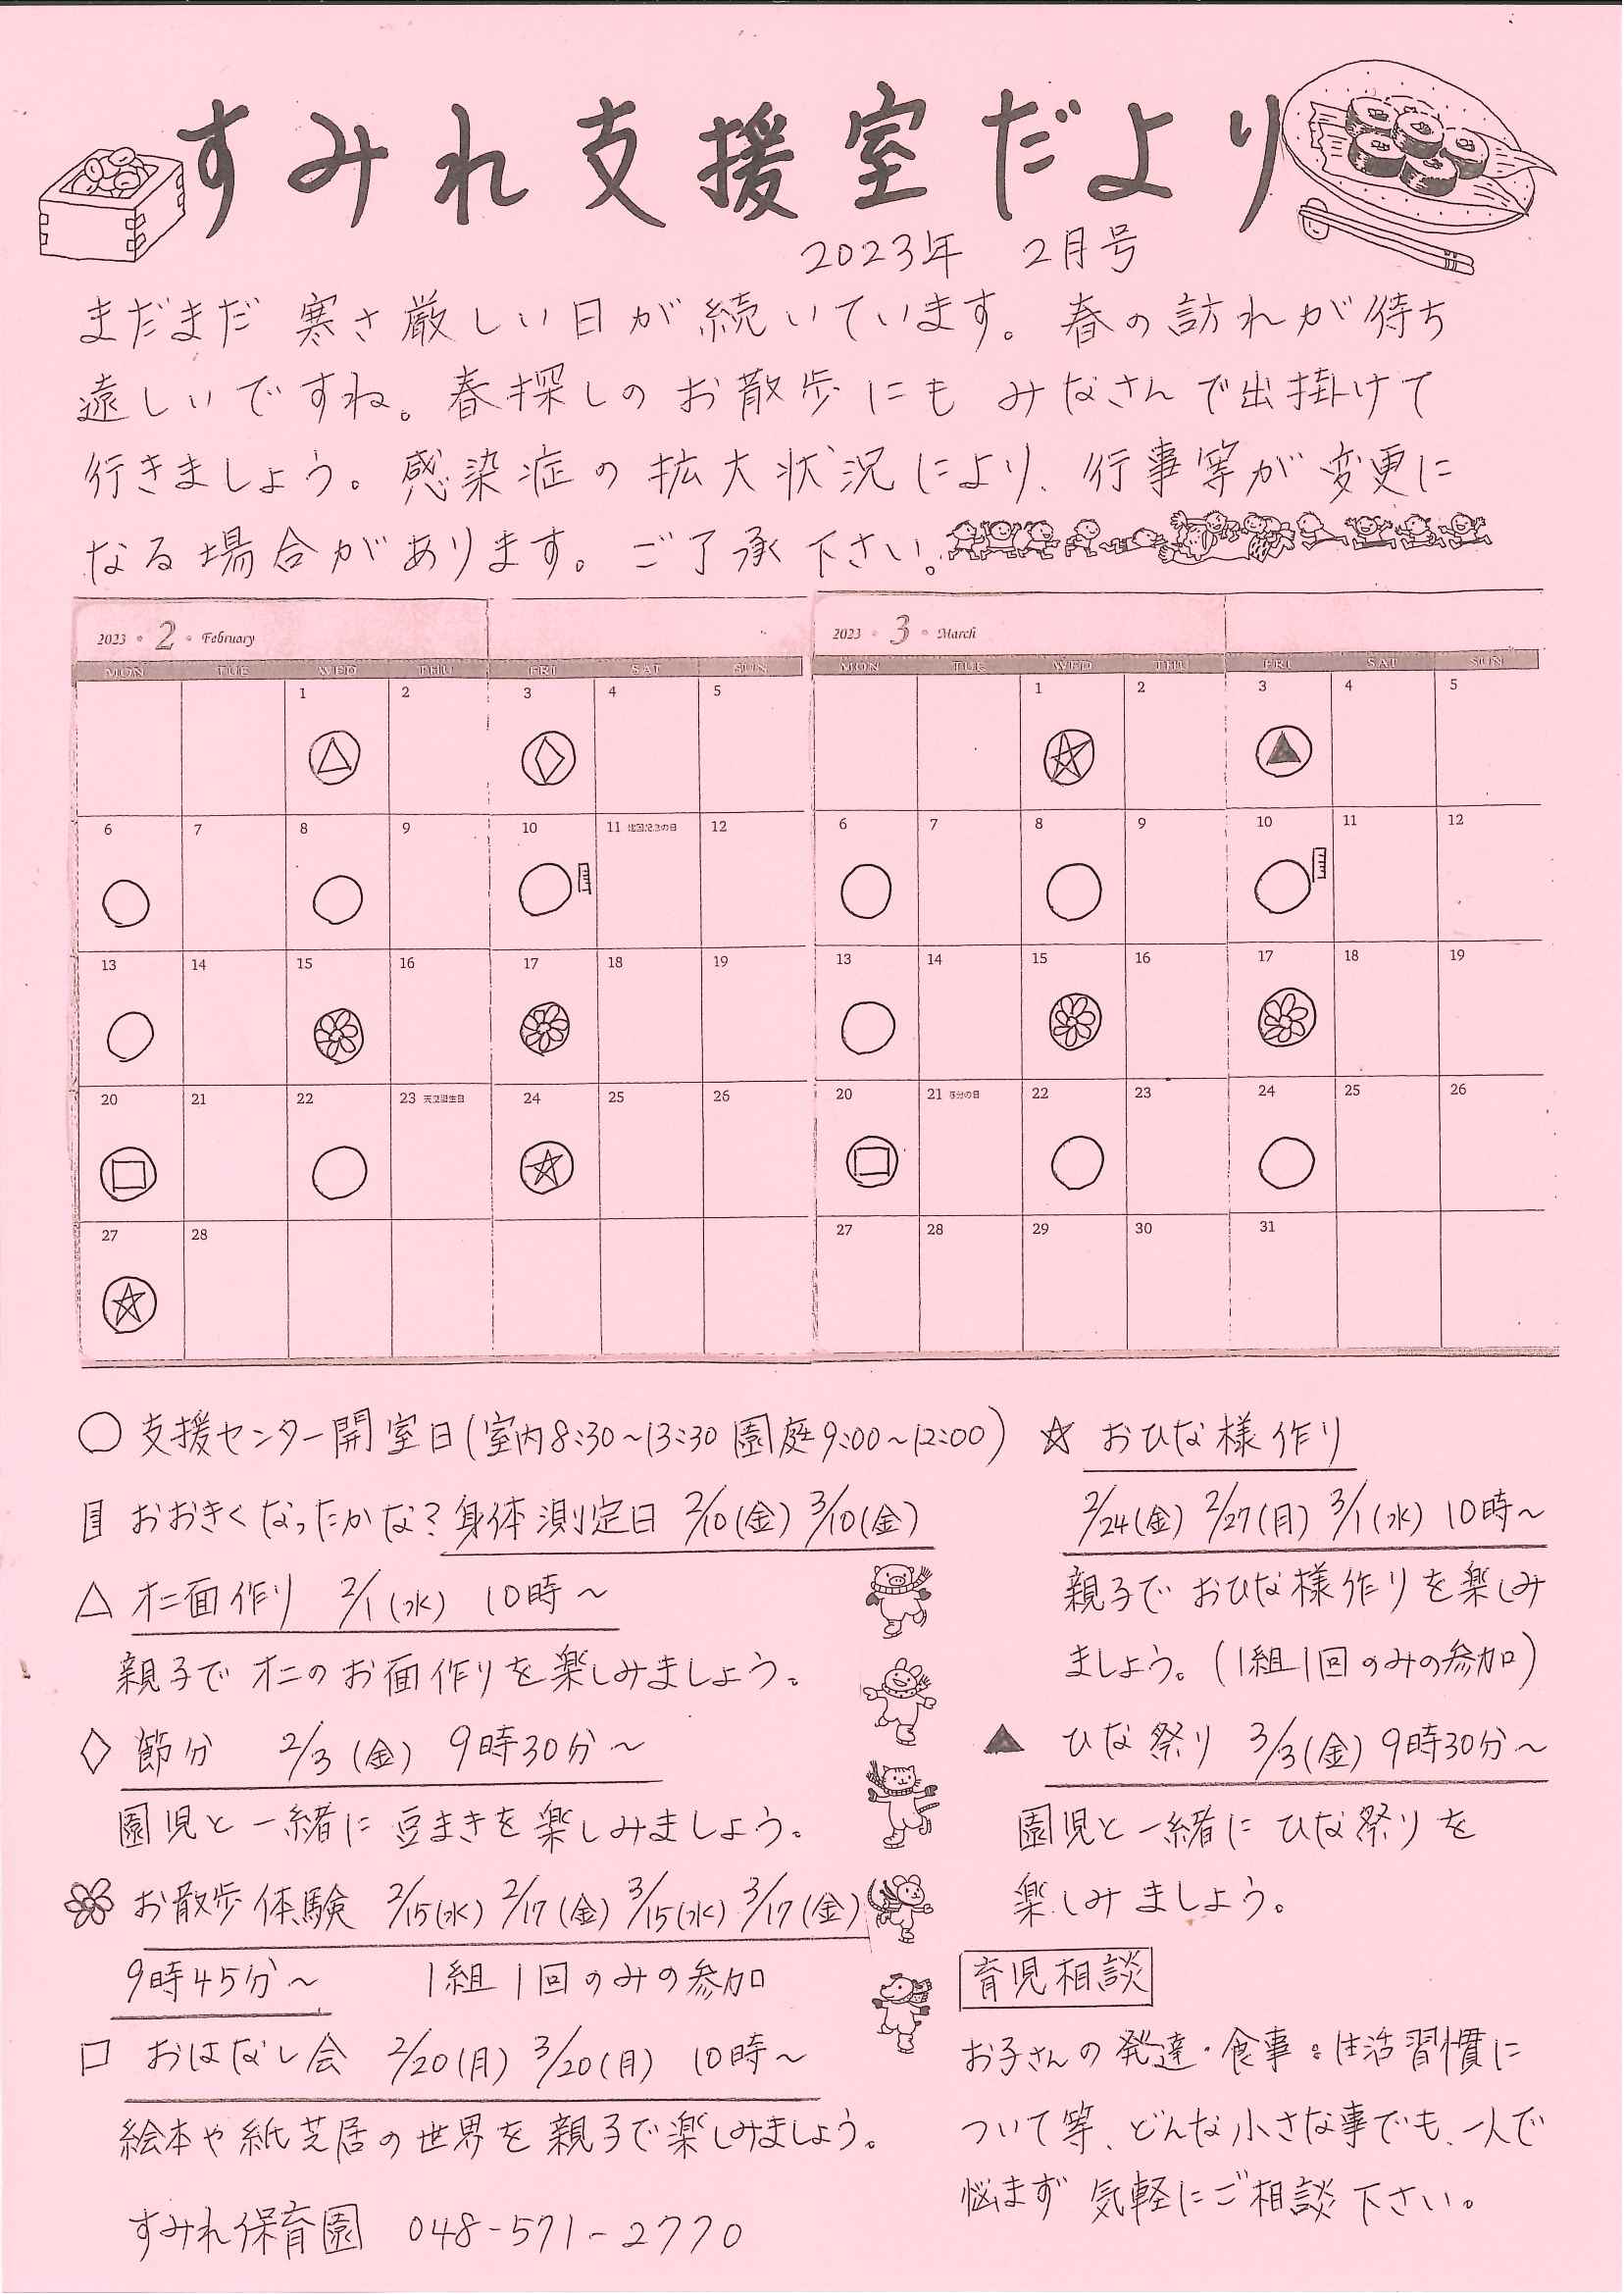 すみれ支援室だより
2023年 2月号
まだまだ 寒さ厳しい日が続いています。春の訪れが待ち
遠しいですね。春探しのお散歩にもみなさんで出掛けて
行きましょう。感染症の拡大状況により、行事等が変更に
なる場合があります。ご了承下さい。
2023 • 2 • February
MON TUE WED THU FRI SAT SUN
1 2 3 4 5
6 7 8 9 10 11 建国記念の日 12
13 14 15 16 17 18 19
20 21 22 23 天皇誕生日 24 25 26
27 28
2023 • 3 • March
MON TUE WED THU FRI SAT SUN
1 2 3 4 5
6 7 8 9 10 11 12
13 14 15 16 17 18 19
20 21 春分の日 22 23 24 25 26
27 28 29 30 31
○ 支援センター開室日(室内8:30~13:30 園庭9:00~12:00)
おおきくなったかな?身体測定日 2/10(金) 3/10(金)
△ オニ面作り 2/1(水) 10時~
親子でオニのお面作りを楽しみましょう。
◇ 節分 2/3(金) 9時30分~
園児と一緒に豆まきを楽しみましょう。
お散歩体験 2/15(水) 2/17(金) 3/15(水) 3/17(金)
9時45分~ 1組1回のみの参加
□ おはなし会 2/20(月) 3/20(月) 10時~
絵本や紙芝居の世界を親子で楽しみましょう。
すみれ保育園 048-571-2770
☆ おひな様作り
2/24(金) 2/27(月) 3/1(水) 10時~
親子でおひな様作りを楽しみ
ましょう。(1組1回のみの参加)
▲ ひな祭り 3/3(金) 9時30分~
園児と一緒にひな祭りを
楽しみましょう。
育児相談
お子さんの発達・食事・生活習慣に
ついて等、どんな小さな事でも、一人で
悩まず気軽にご相談下さい。